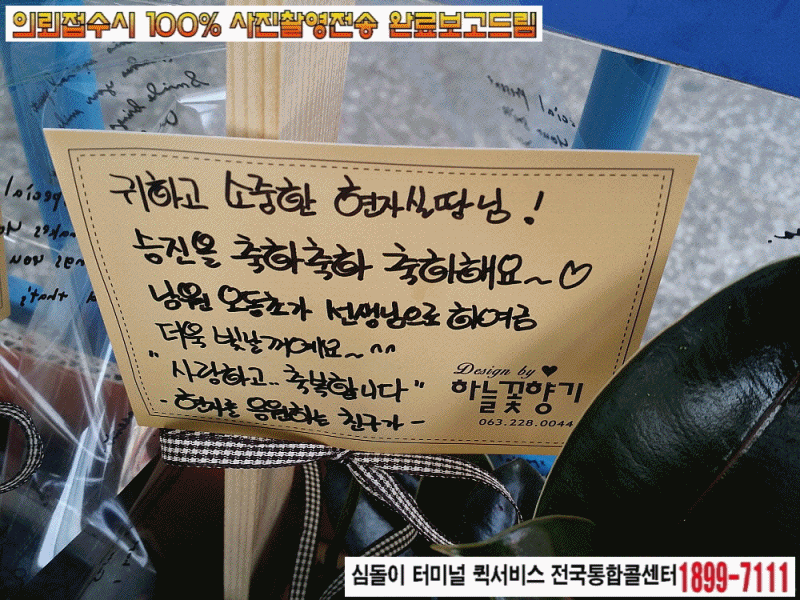 의뢰접수시 100% 사진촬영전송 완료보고드림
귀하고 소중한 현자실땅님!
승진을 축하축하 축하해요~♡
남원 오동초가 선생님으로 하여금
더욱 빛날꺼예요~^^
"사랑하고.. 축복합니다"
- 현자를 응원하는 친구가 -
Design by ♥
하늘꽃향기
063.228.0044
심돌이 터미널 퀵서비스 전국통합콜센터 1899-7111